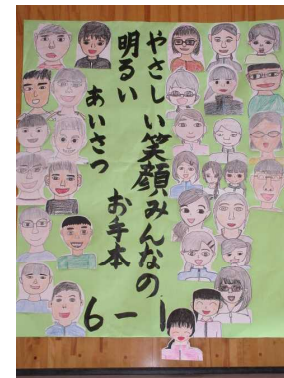 やさしい笑顔みんなの
明るい
あいさつ
お手本
6-1